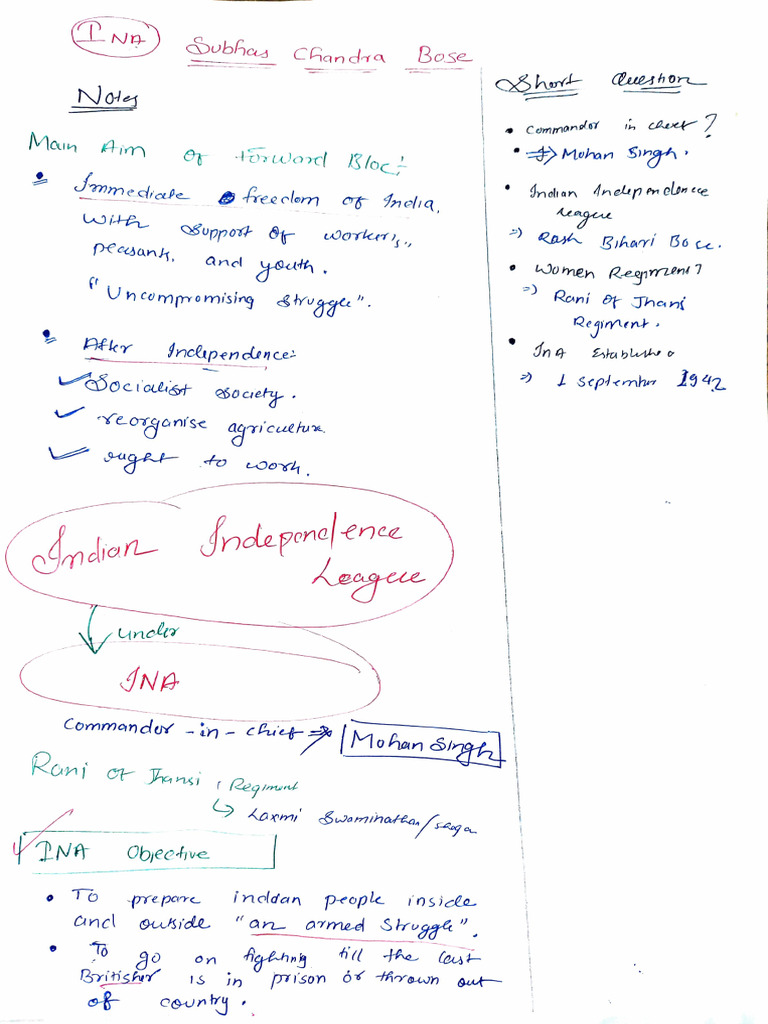 INA Subhas Chandra Bose
Notes
Main Aim of Forward Bloc:-
Immediate freedom of India,
with support of workers,
peasants, and youth.
"Uncompromising struggle".
After Independence:-
Socialist society.
reorganise agriculture.
ought to work.
Indian Independence
League
under
INA
Commander-in-chief ⇒ Mohan Singh
Rani of Jhansi, Regiment
Laxmi Swaminathan/
INA Objective
To prepare inddan people inside
and outside "an armed struggle".
To go on fighting till the last
Britisher is in prison or thrown out
of country.
Short Question
Commandor in cheif?
⇒ Mohan Singh.
Indian Independence
League
⇒ Rash Bihari Bose.
Women Regiment?
⇒ Rani of Jhansi
Regiment.
INA Established
⇒ 1 September 1942